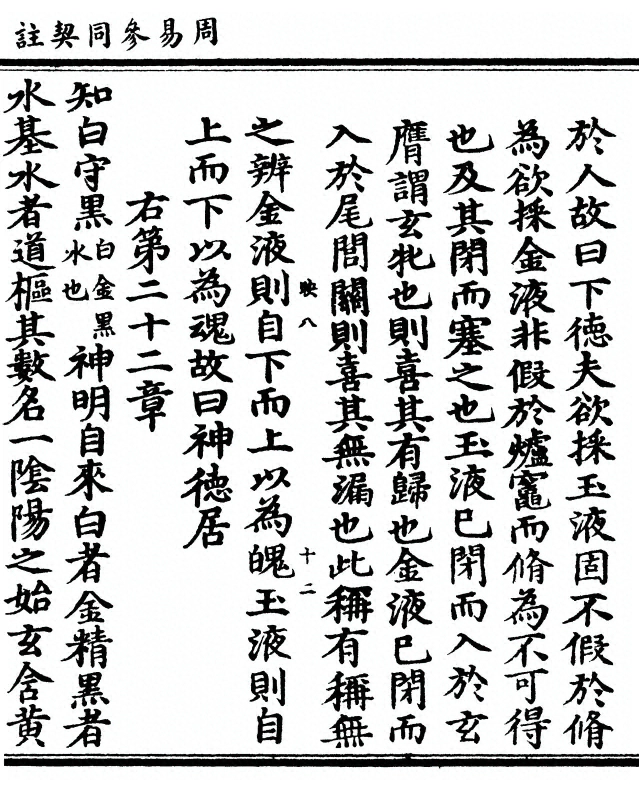 周易參同契註
於人故曰下德夫欲採玉液固不假於脩
為欲採金液非假於爐竈而脩為不可得
也及其閉而塞之也玉液已閉而入於玄
膺謂玄牝也則喜其有歸也金液已閉而
入於尾閭關則喜其無漏也此稱有稱無
映八
十二
之辨金液則自下而上以為魄玉液則自
上而下以為魂故曰神德居
右第二十二章
知白守黑白金黑水也神明自來白者金精黑者
水基水者道樞其數名一陰陽之始玄含黃